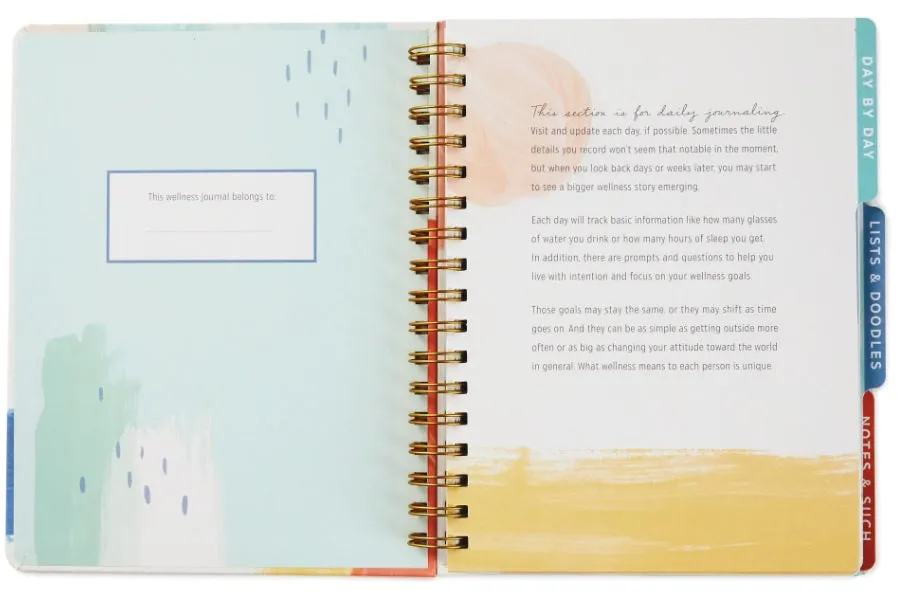 This wellness journal belongs to:
This section is for daily journaling.
Visit and update each day, if possible. Sometimes the little
details you record won't seem that notable in the moment,
but when you look back days or weeks later, you may start
to see a bigger wellness story emerging.
Each day will track basic information like how many glasses
of water you drink or how many hours of sleep you get.
In addition, there are prompts and questions to help you
live with intention and focus on your wellness goals.
Those goals may stay the same, or they may shift as time
goes on. And they can be as simple as getting outside more
often or as big as changing your attitude toward the world
in general. What wellness means to each person is unique.
DAY BY DAY
LISTS & DOODLES
NOTES & SUCH